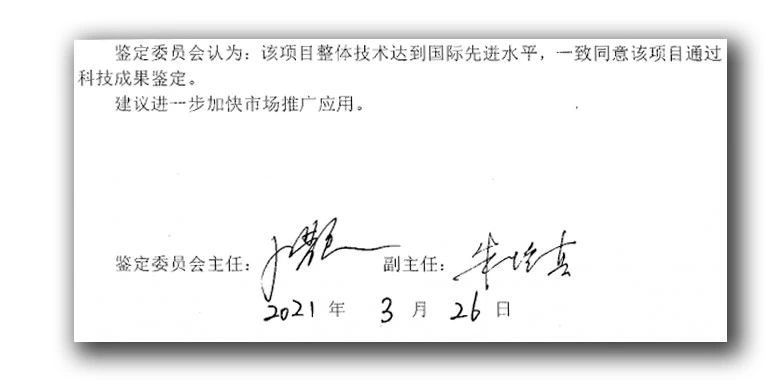 鉴定委员会认为：该项目整体技术达到国际先进水平，一致同意该项目通过
科技成果鉴定。
建议进一步加快市场推广应用。
鉴定委员会主任： 副主任：
2021 年 3 月 26 日